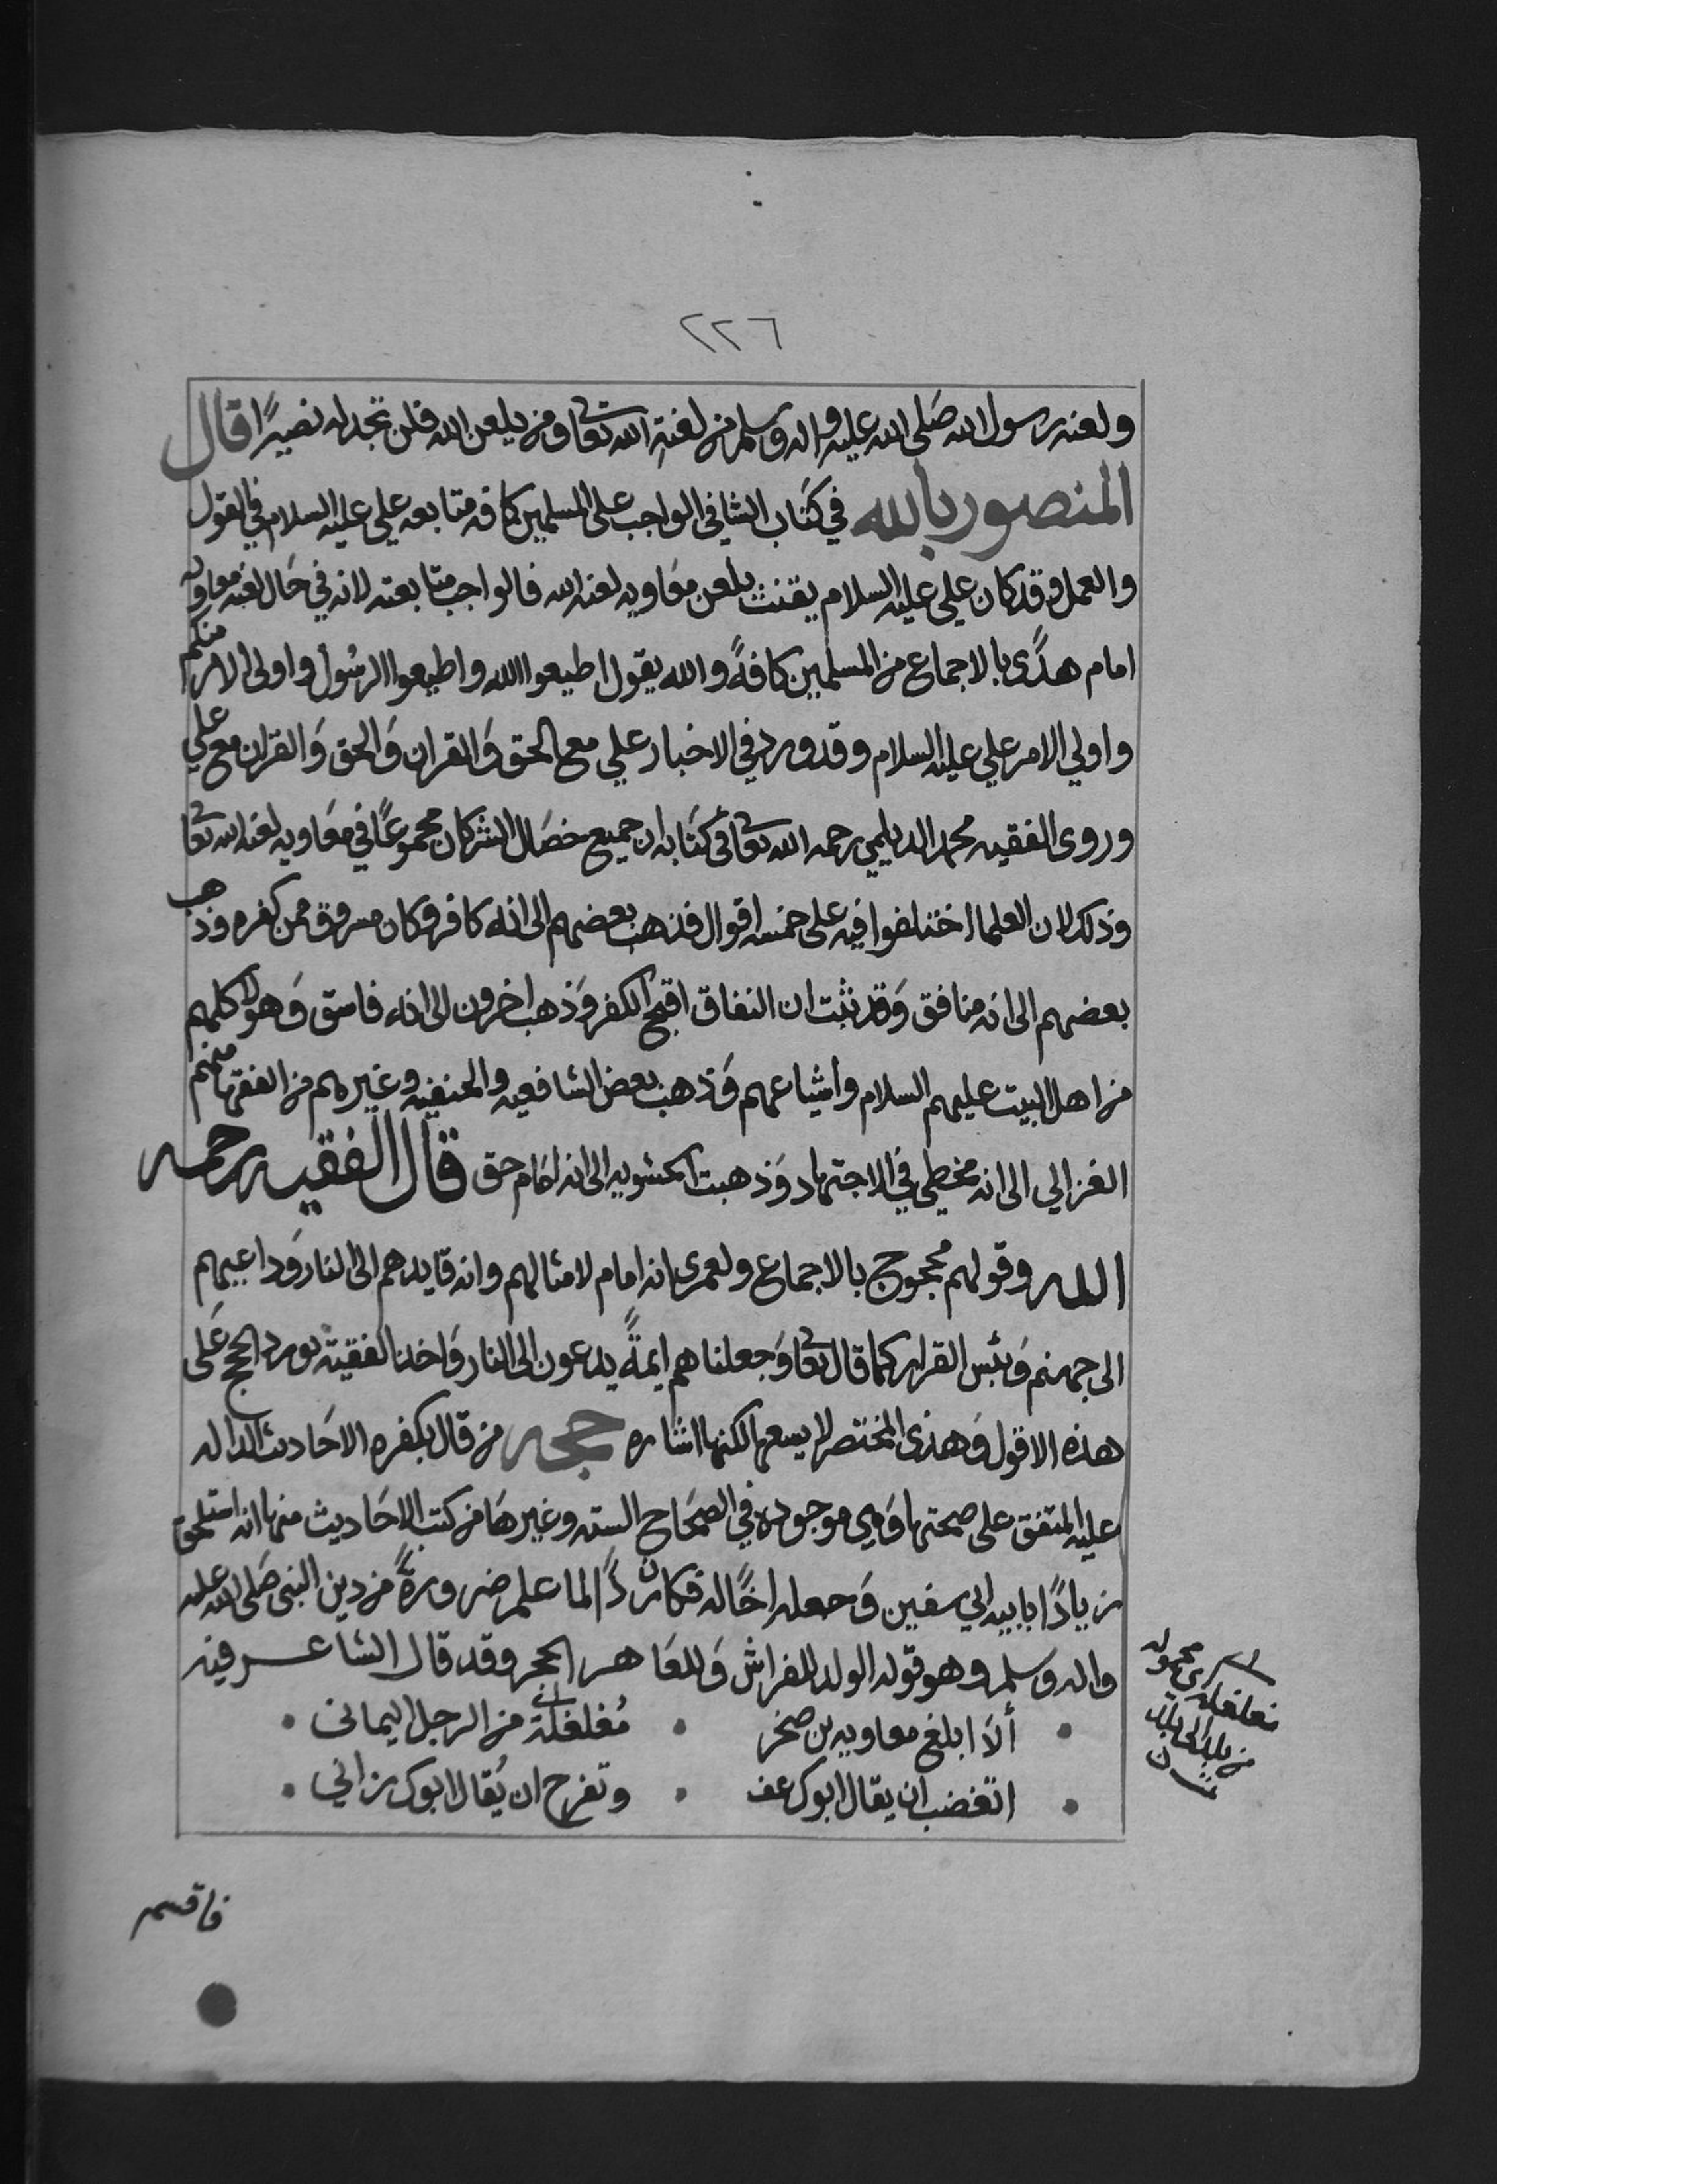 ٢٢٦
ولعنه رسول الله صَلى الله عليه واله وسلم من لعنهِ الله تعالى ومن يلعن الله فلن تجد له نصيرًا قال
المنصور بالله في كتاب الشافي الواجب على المسلمين كافه متابعه علي عليه السلام في القول
والعمل وقد كان علي عليه السلام يقنت بلعن معَاويه لعنه الله فالواجب متابعته لانه في حَال لعنه معاويه
امام هدًى بالاجماع من المسلمين كافةً والله يقول اطيعوا الله واطيعوا الرسُول واولى الامر منكم
واولي الامر علي عليه السلام وقد ورد في الاخبار علي مع الحق وَالقران وَالحق وَالقران مع علي
وروى الفقيه محمد الديلمي رحمه الله تعالى في كتابه ان جميع خصَال الشر كان مجموعًا في معَاويه لعنه الله تعالى
وذلك لان العلما اختلفوا فيه على خمسه اقوال فذهب بعضهم الى انه كافر وكان مسروق ممن كفره وذهب
بعضهم الى انه منافق وَقد ثبت ان النفاق اقبح الكفر وَذهب اخرون الى انه فاسق وَهولا كلهم
من اهل البيت عليهم السلام وأشياعهم وَذهب بعض الشافعيه والحنفيه وغيرهم من الفقها منهم
الغزالي الى انه مخطي في الاجتهاد وَذهبت الحشويه الى انه امَام حق قال الفقيه رحمه
الله وقولهم محجوج بالاجماع ولعمرى انه امام لامثالهم وانه قايدهم الى النار وَداعيهم
الى جهنم وَبئس القرار كما قال تعالى وَجعلناهم ايمةً يدعون الى النار وَاخذ الفقيه يورد الحجج عَلى
هذه الاقول وَهذى المختصر لا يسعها لكنها اشاره حجه من قال بكفره الاحَاديث الداله
عليه المتفق على صحتها وَهي موجوده في الصحَاح السته وغيرهَا من كتب الاحَاديث منها انه استلحق
زيادًا بابيه ابي سفين وَجعله اخًا له فكان ردًّا لما علم ضرورةً من دين النبى صَلى الله عليه
واله وَسلم وهو قوله الولد للفراش وَللعَاهر الحجر وقد قال الشاعر فيه
ألَا ابلغ معاويه بن صخر • مُغلغلة من الرجل اليمانى
اتغضب ان يقال ابوك عف • وتفرح ان يُقال ابوك زاني
فاقسم